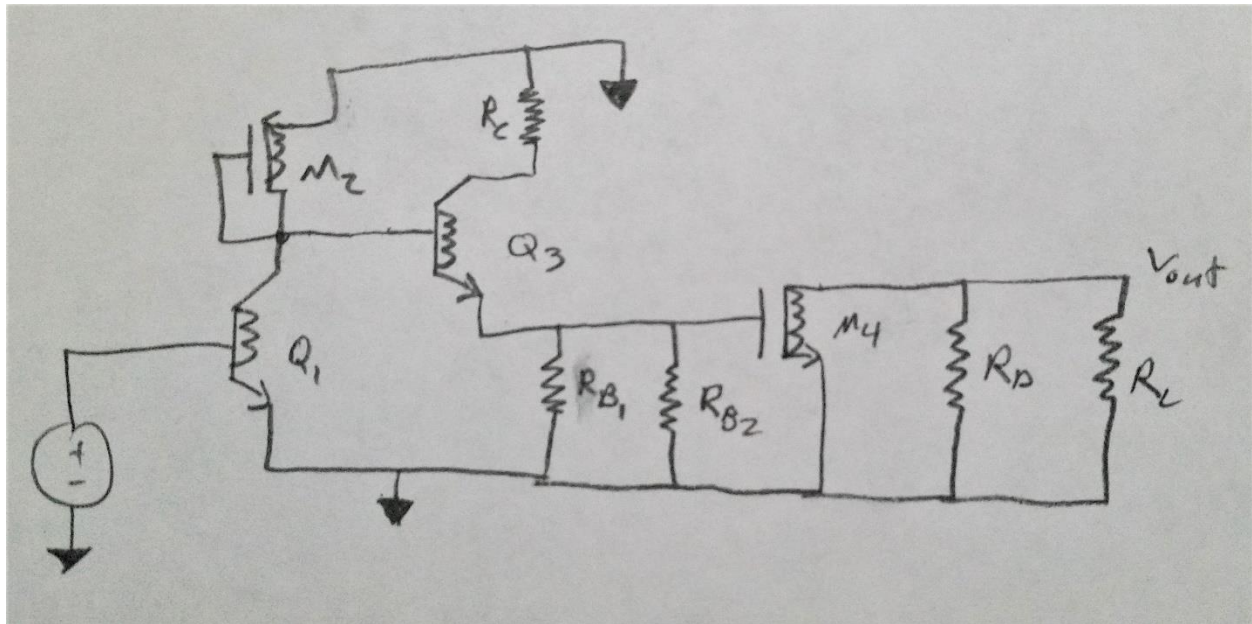 R_C
M_2
Q_3
V_out
M_4
Q_1
R_B_1
R_B_2
R_D
R_L
+
-